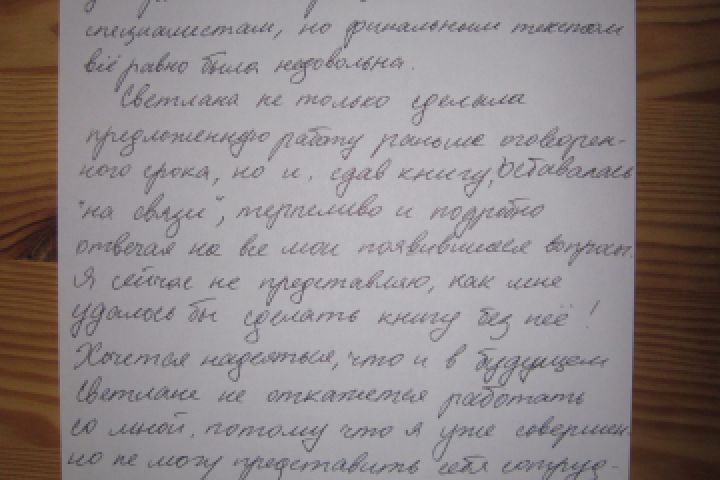 специалистам, но финальным текстом
всё равно была недовольна.
Светлана не только сделала
предложенную работу раньше оговорен-
ного срока, но и, сдав книгу, оставалась
"на связи", терпеливо и подробно
отвечая на все мои появившиеся вопросы.
Я сейчас не представляю, как мне
удалось бы сделать книгу без неё!
Хочется надеяться, что и в будущем
Светлане не откажется работать
со мной, потому что я уже совершен-
но не могу представить себя сотруд-